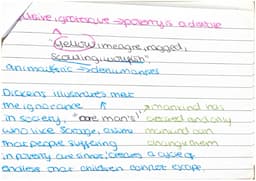 grotesque → poverty is a disease
"yellow, meagre, ragged,
scowling, wolfish"
animalistic → dehumanises
Dickens illustrates that
the ignorance → mankind has
in society, "man's" created and only
who like Scrooge, mankind can
that people suffering change them
in poverty are creates a cycle of
endless that children cannot escape.